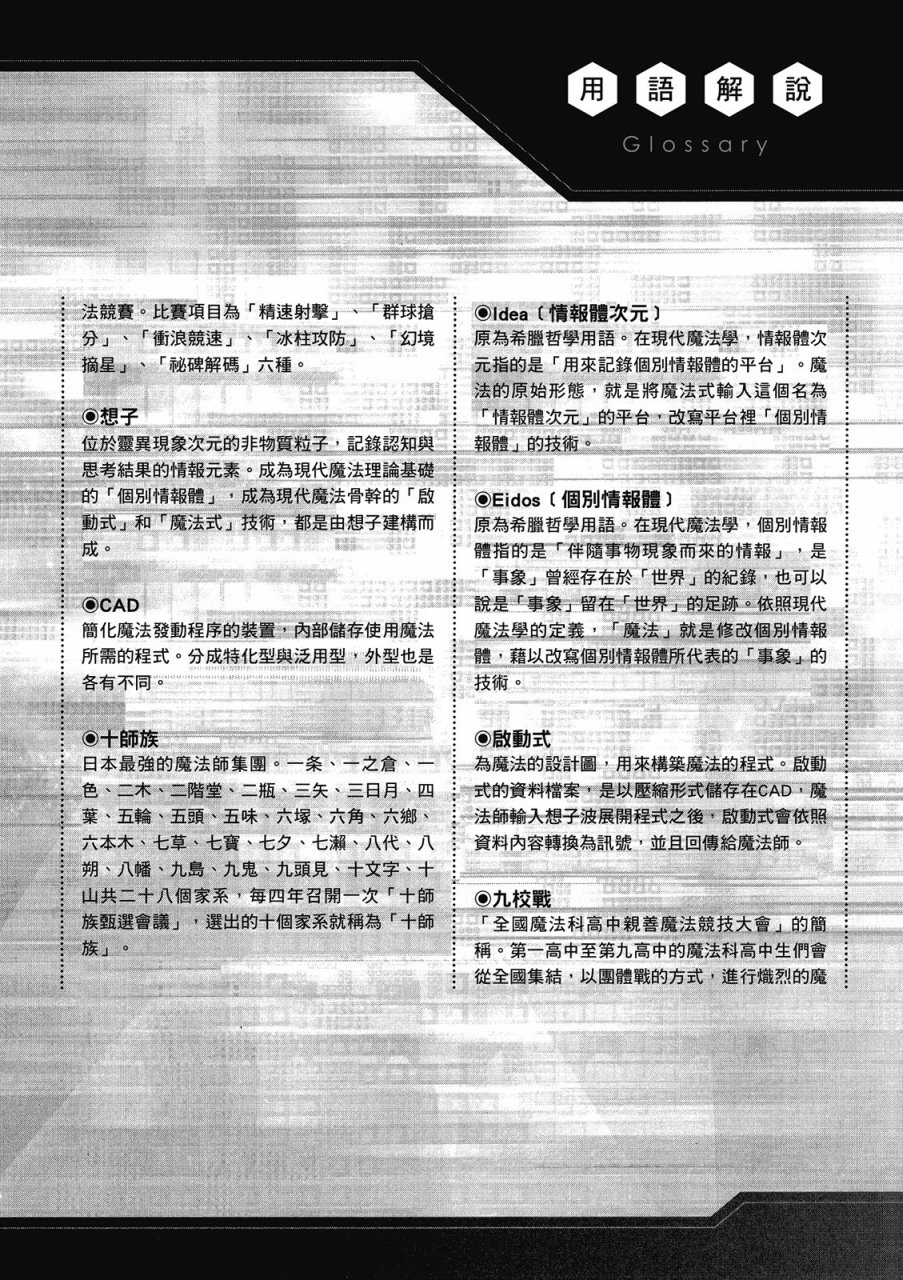 用語解說
Glossary
◉Idea﹝情報體次元﹞
原為希臘哲學用語。在現代魔法學，情報體次
元指的是「用來記錄個別情報體的平台」。魔
法的原始形態，就是將魔法式輸入這個名為
「情報體次元」的平台，改寫平台裡「個別情
報體」的技術。
◉Eidos﹝個別情報體﹞
原為希臘哲學用語。在現代魔法學，個別情報
體指的是「伴隨事物現象而來的情報」，是
「事象」曾經存在於「世界」的紀錄，也可以
說是「事象」留在「世界」的足跡。依照現代
魔法學的定義，「魔法」就是修改個別情報
體，藉以改寫個別情報體所代表的「事象」的
技術。
◉啟動式
為魔法的設計圖，用來構築魔法的程式。啟動
式的資料檔案，是以壓縮形式儲存在CAD，魔
法師輸入想子波展開程式之後，啟動式會依照
資料內容轉換為訊號，並且回傳給魔法師。
◉九校戰
「全國魔法科高中親善魔法競技大會」的簡
稱。第一高中至第九高中的魔法科高中生們會
從全國集結，以團體戰的方式，進行熾烈的魔
法競賽。比賽項目為「精速射擊」、「群球搶
分」、「衝浪競速」、「冰柱攻防」、「幻境
摘星」、「祕碑解碼」六種。
◉想子
位於靈異現象次元的非物質粒子，記錄認知與
思考結果的情報元素。成為現代魔法理論基礎
的「個別情報體」，成為現代魔法骨幹的「啟
動式」和「魔法式」技術，都是由想子建構而
成。
◉CAD
簡化魔法發動程序的裝置，內部儲存使用魔法
所需的程式。分成特化型與泛用型，外型也是
各有不同。
◉十師族
日本最強的魔法師集團。一条、一之倉、一
色、二木、二階堂、二瓶、三矢、三日月、四
葉、五輪、五頭、五味、六塚、六角、六鄉、
六本木、七草、七寶、七夕、七瀨、八代、八
朔、八幡、九島、九鬼、九頭見、十文字、十
山共二十八個家系，每四年召開一次「十師
族甄選會議」，選出的十個家系就稱為「十師
族」。